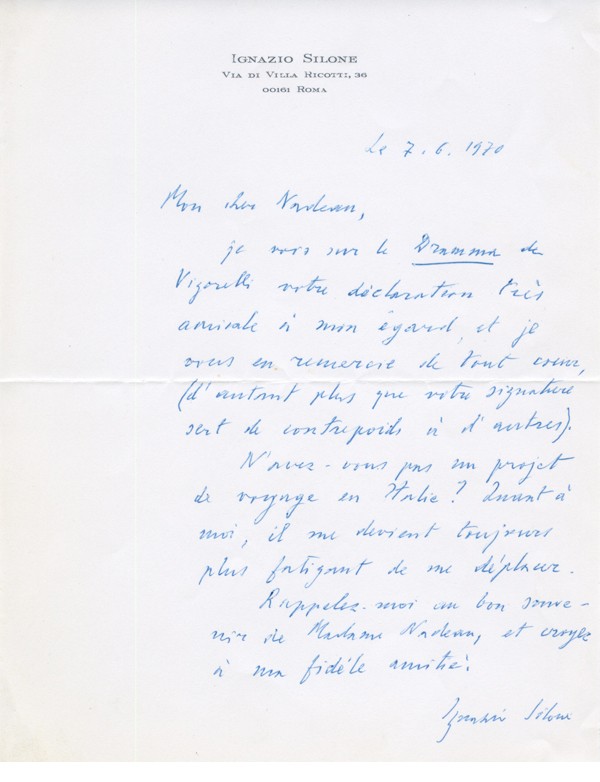 IGNAZIO SILONE
VIA DI VILLA RICOTTI, 36
00161 ROMA
Le 7. 6. 1970
Mon cher Nadeau,
je vois sur le Dramma de
Vigorelli votre déclaration très
amicale à mon égard, et je
vous en remercie de tout coeur,
(d'autant plus que votre signature
sert de contrepoids à d'autres).
N'avez-vous pas un projet
de voyage en Italie? Quant à
moi, il me devient toujours
plus fatigant de me déplacer.
Rappelez-moi au bon souve-
nir de Madame Nadeau, et croyez
à ma fidèle amitié.
Ignazio Silone